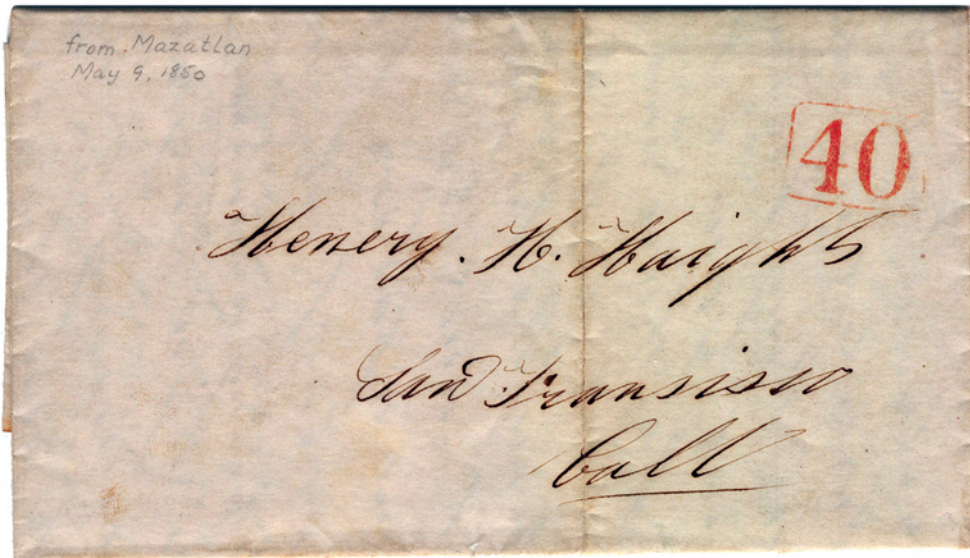 from Mazatlan
May 9, 1850
40
Henery. H. Haight
San Fransisco
Call